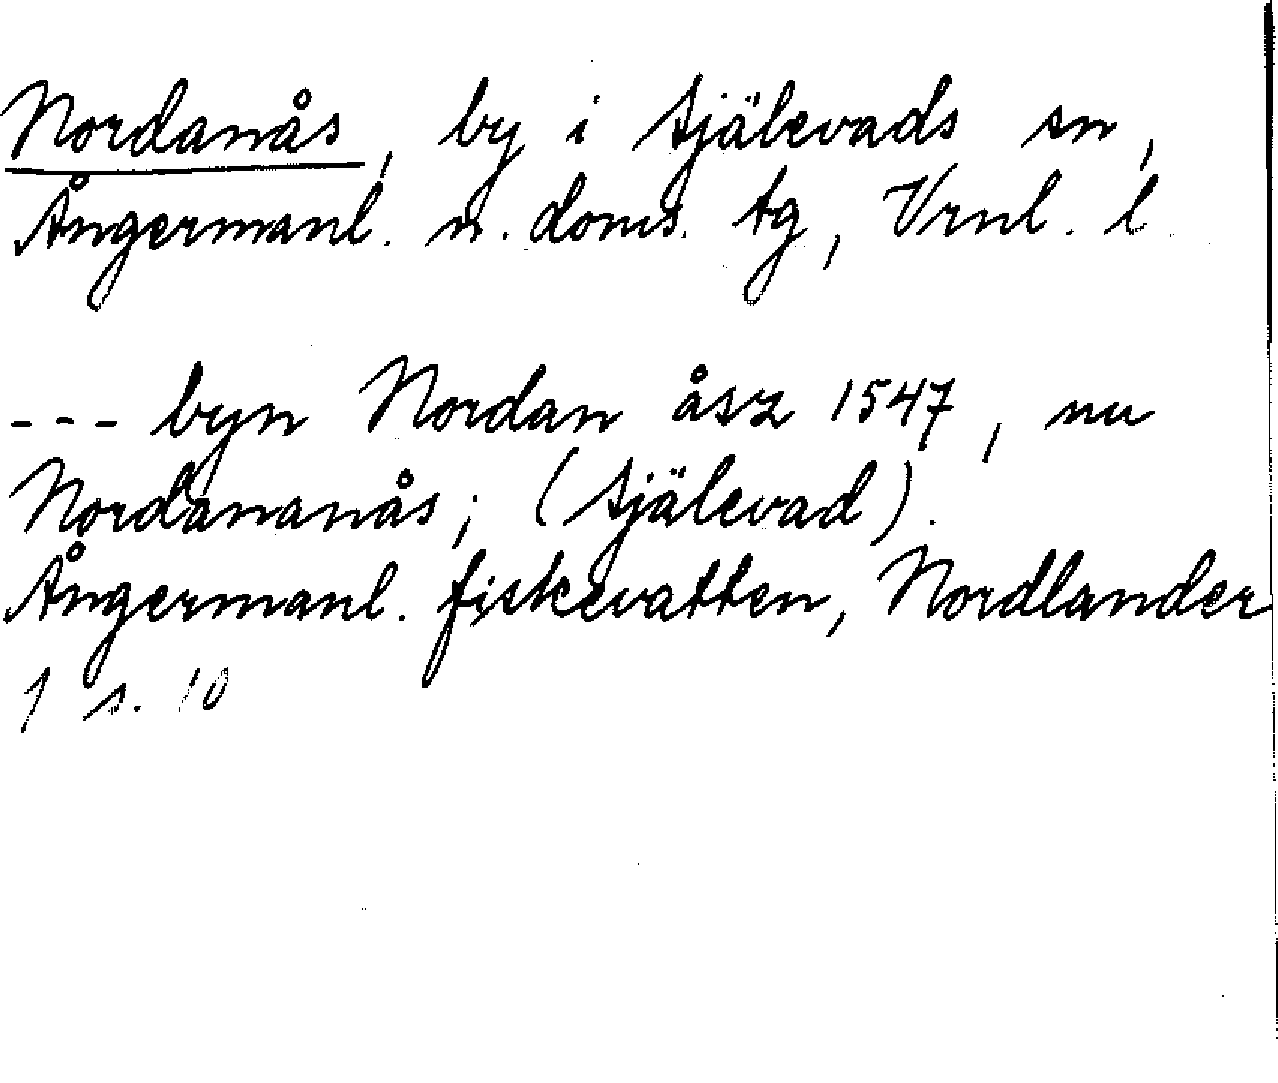 Nordanås, by i Själevads sn,
Ångermanl. n. doms. tg, Vrnl. l.
--- byn Nordan åsz 1547, nu
Nordananås; (Själevad).
Ångermanl. fiskevatten, Nordlander
1 s. 10